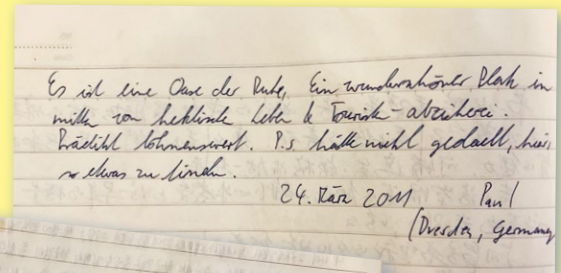 Es ist eine Oase der Ruhe, Ein wunderschöner Platz in
mitte von hektische Leben & Touristik-
lohnenswert. P.s hätte nicht gedacht, hier,
so etwas zu finden.
24. März 2011 Paul
(Dresden, Germany